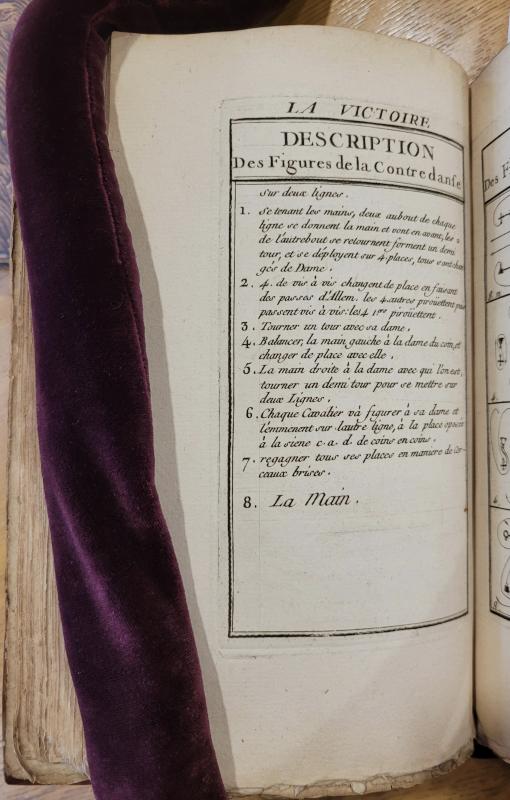 LA VICTOIRE
DESCRIPTION
Des Figures de la Contredanse
sur deux lignes.
1. se tenant les mains, deux au bout de chaque
ligne se donnent la main et vont en avant, les 2
de l'autre bout se retournent forment un demi
tour, et se déployent sur 4. places, tous sont chan
gés de Dame.
2. 4. de vis à vis changent de place en faisant
des passes d'Allem. les 4 autres pirouëttent puis
passent vis à vis: les 4 1ers pirouëttent.
3. Tourner un tour avec sa dame.
4. Balancer, la main gauche à la dame du coin, et
changer de place avec elle.
5. La main droite à la dame avec qui l'on est,
tourner un demi tour pour se mettre sur
deux Lignes.
6. Chaque Cavalier và figurer à sa dame et
l'emmenent sur l'autre ligne, à la place oposée
à la siene c. a. d. de coins en coins.
7. regagner tous ses places en maniere de Cer-
ceaux brisés.
8. La Main.
Des F